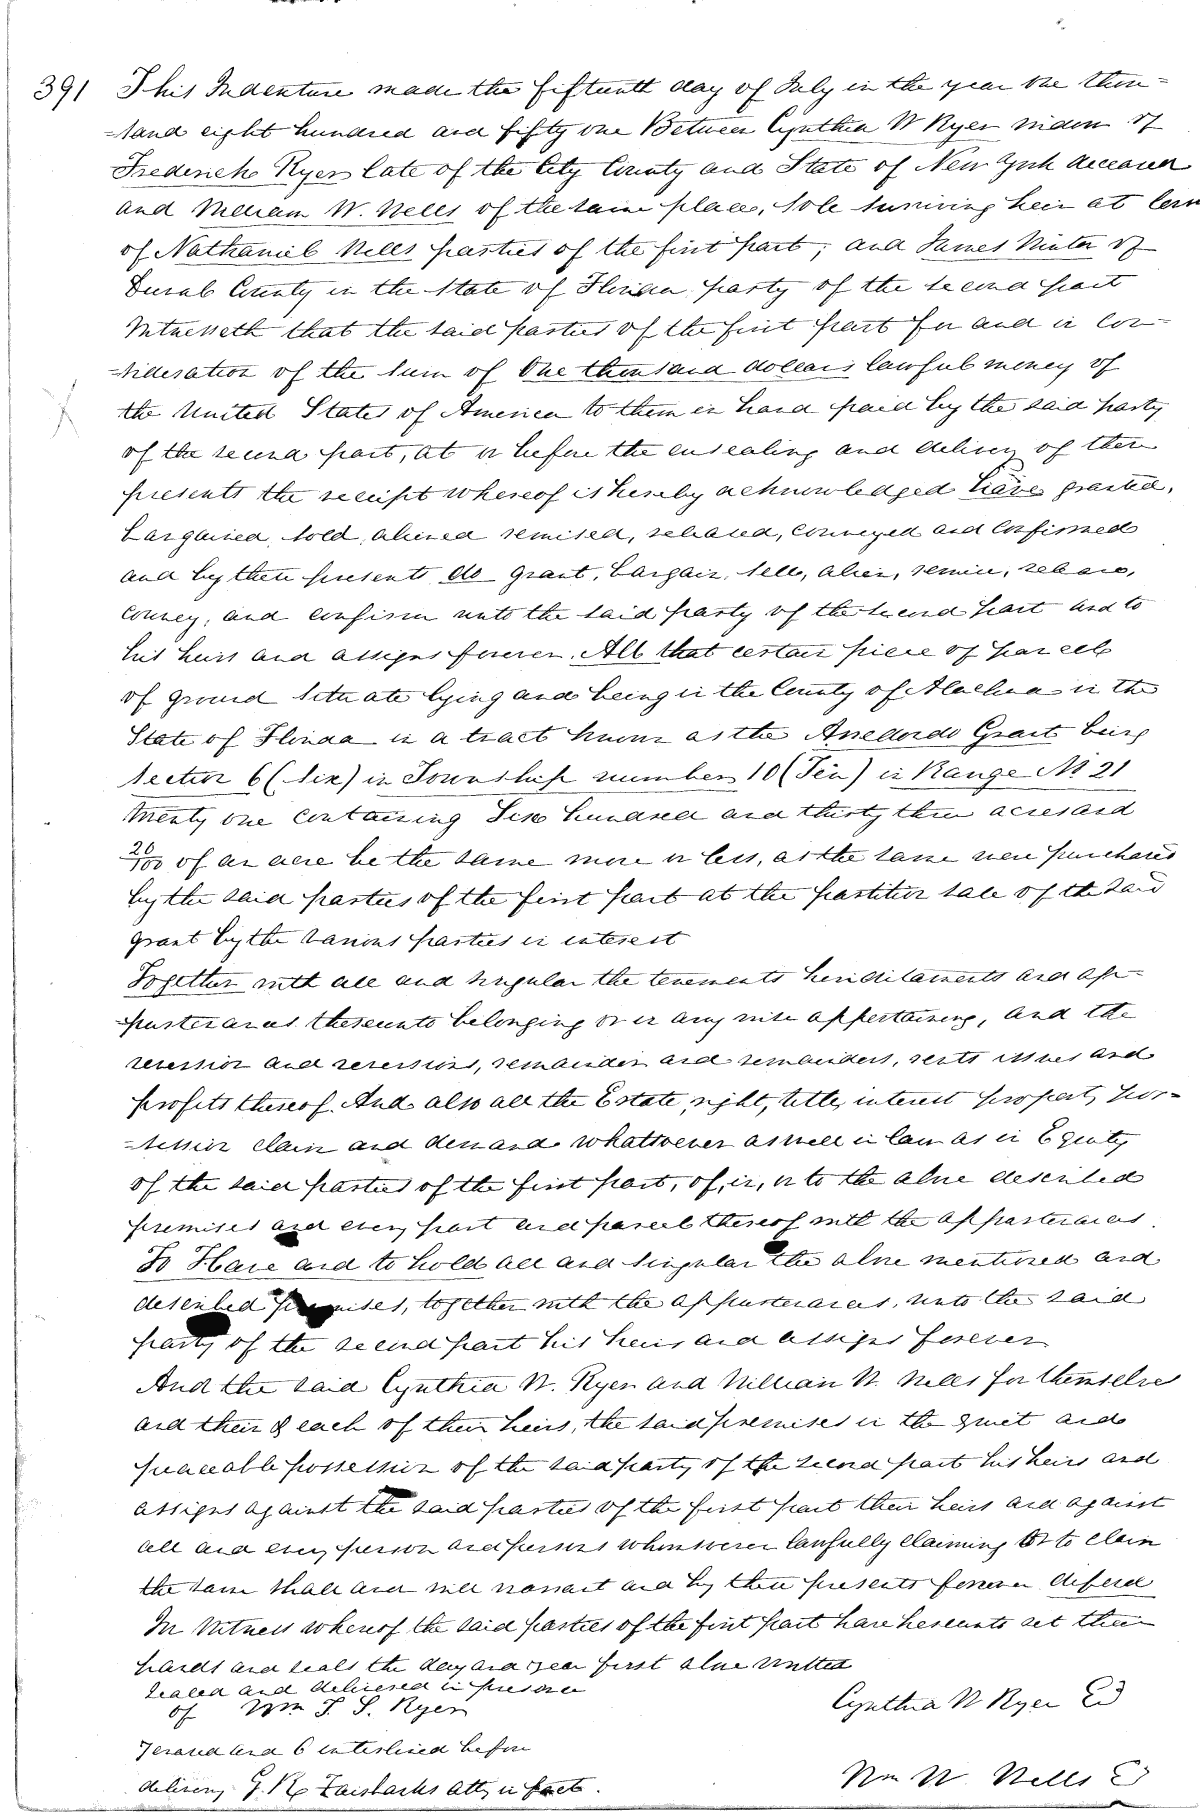 391 This Indenture made the fifteenth day of July in the year one thou=
=sand eight hundred and fifty one Between Cynthia W Ryer widow of
Frederick Ryer late of the City County and State of New York deceased
and William W. Wells of the same place, sole surviving heir at law
of Nathaniel Wells parties of the first part, and James Winter of
Duval County in the State of Florida party of the second part
Witnesseth that the said parties of the first part for and in con=
=sideration of the sum of One thousand dollars lawful money of
the United States of America to them in hand paid by the said party
of the second part, at or before the ensealing and delivery of these
presents the receipt whereof is hereby acknowledged have granted,
bargained, sold, aliened remised, released, conveyed and confirmed
and by these presents do grant, bargain, sell, alien, remise, release,
convey, and confirm unto the said party of the second part and to
his heirs and assigns forever. All that certain piece of parcel
of ground situate lying and being in the County of Alachua in the
State of Florida in a tract known as the Arredondo Grant being
Section 6 (six) in Township number 10 (Ten) in Range No 21
twenty one containing Six hundred and thirty three acres and
20/100 of an acre be the same more or less, as the same were purchased
by the said parties of the first part at the partition sale of the said
grant by the various parties in interest
Together with all and singular the tenements hereditaments and ap=
=purtenances thereunto belonging or in any wise appertaining, and the
reversion and reversions, remainder and remainders, rents issues and
profits thereof. And also all the Estate, right, title, interest property pos=
=session claim and demand whatsoever as well in law as in Equity
of the said parties of the first part, of, in, or to the above described
premises and every part and parcel thereof with the appurtenances.
To Have and to hold all and singular the above mentioned and
described premises, together with the appurtenances, unto the said
party of the second part his heirs and assigns forever
And the said Cynthia W. Ryer and William W. Wells for themselves
and their & each of their heirs, the said premises in the quiet and
peaceable possession of the said party of the second part his heirs and
assigns against the said parties of the first part their heirs and against
all and every person and persons whomsoever lawfully claiming or to claim
the same shall and will warrant and by these presents forever defend
In Witness whereof the said parties of the first part have hereunto set their
hands and seals the day and year first above written
Sealed and delivered in presence
of Wm F. S. Ryer
Cynthia W Ryer
and 6 interlined before
delivery G. R. Fairbanks atty in fact.
Wm W. Wells